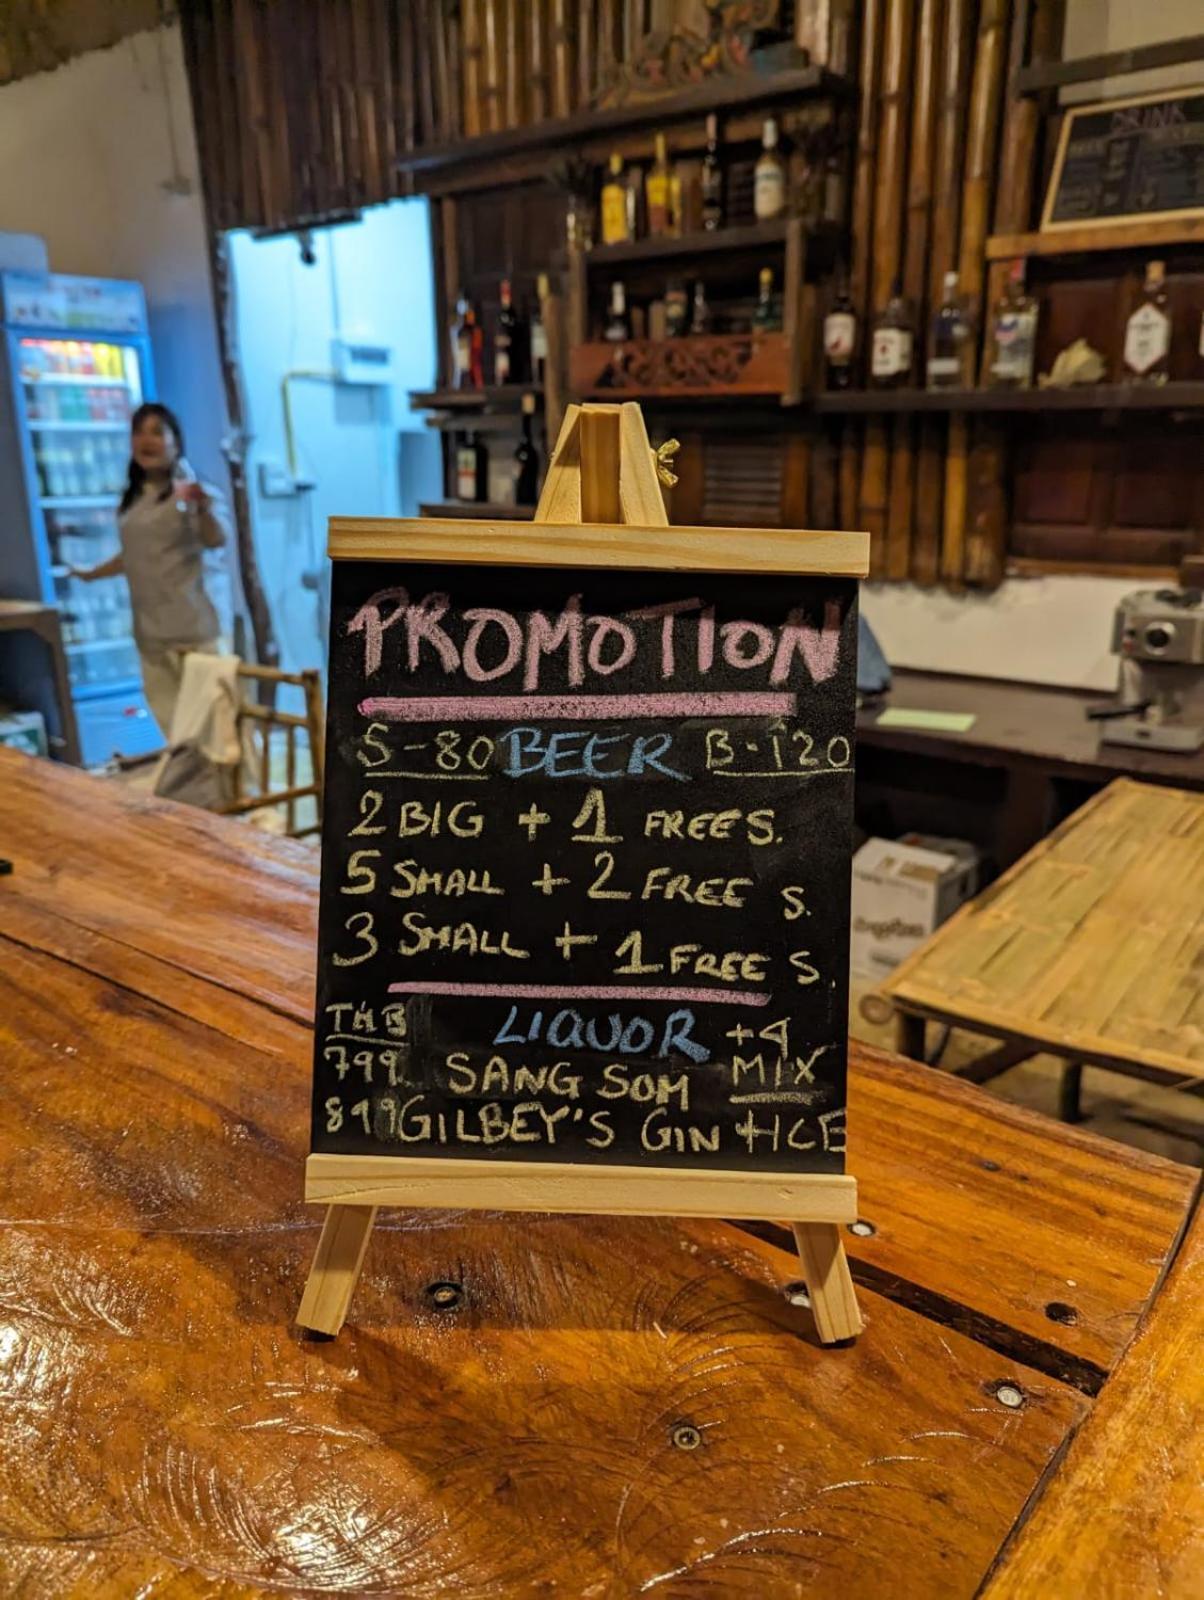 PROMOTION
S-80 BEER B-120
2 BIG + 1 FREE S.
5 SMALL + 2 FREE S.
3 SMALL + 1 FREE S.
THB LIQUOR +4
799. SANG SOM MIX
849 GILBEY'S GIN + ICE
DRINK